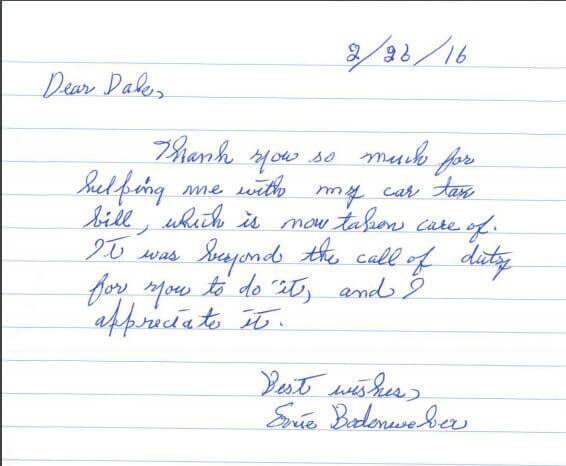 2/26/16
Dear Dale,
Thank you so much for
helping me with my car tax
bill, which is now taken care of.
It was beyond the call of duty
for you to do it, and I
appreciate it.
Best wishes,